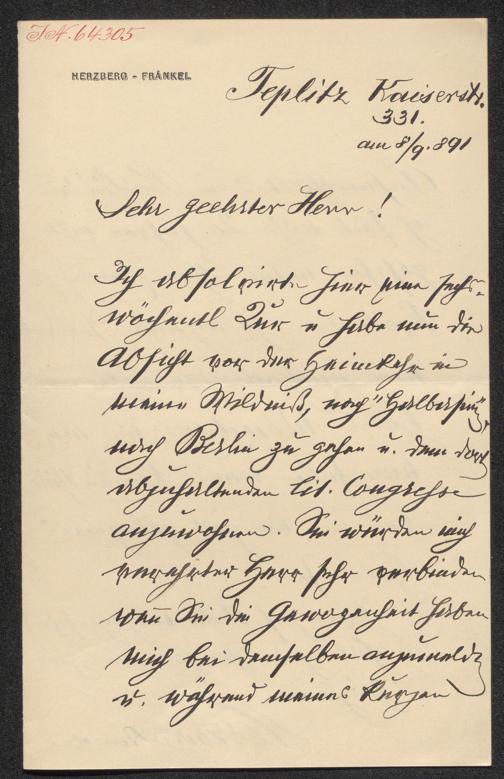 I.N. 64305
HERZBERG - FRÄNKEL
Teplitz Kaiserstr.
331.
am 8/9. 891
Sehr geehrter Herr!
Ich absolvirte hier eine sechs-
wöchentl Kur u habe nun die
Absicht vor der Heimkehr in
meine Wildniß, nach
nach Berlin zu gehen u. dem dort
abzuhaltenden lit. Congresse
anzuwohnen. Sie würden mich
verehrter Herr sehr verbinden
wenn Sie die Gewogenheit haben
mich bei demselben anzumelden
u. während meines kurzen